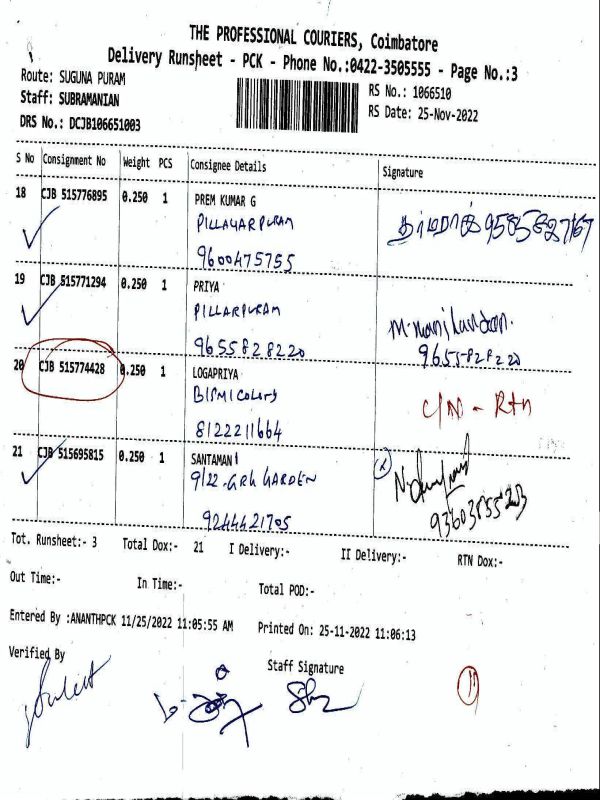 THE PROFESSIONAL COURIERS, Coimbatore
Delivery Runsheet - PCK - Phone No.:0422-3505555 - Page No.:3
Route: SUGUNA PURAM
RS No.: 1066510
Staff: SUBRAMANIAN
RS Date: 25-Nov-2022
DRS No.: DCJB106651003
S No Consignment No Weight PCS Consignee Details Signature
18 CJB 515776895 0.250 1 PREM KUMAR G
PILLAYARPURAM
தர்மராஜ் 9585827167
9600475755
19 CJB 515771294 0.250 1 PRIYA
PILLARPURAM
M. Manikandan.
9655828220
9655828220
20 CJB 515774428 0.250 1 LOGAPRIYA
BISMI COLONY
C/N - Rtn
8122211664
21 CJB 515695815 0.250 1 SANTAMANI
9/22-GRK GARDEN
9244421705
Tot. Runsheet:- 3 Total Dox:- 21 I Delivery:- II Delivery:- RTN Dox:-
Out Time:- In Time:- Total POD:-
Entered By :ANANTHPCK 11/25/2022 11:05:55 AM Printed On: 25-11-2022 11:06:13
Verified By Staff Signature
11